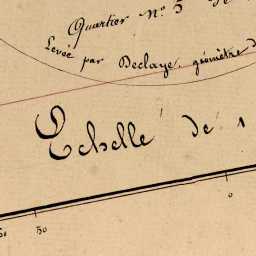 Quartier N° 5
Levée par Declaye, géomètre
Echelle de 1
50 0